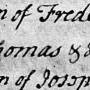 n of Frede
homas &
n of Joseph